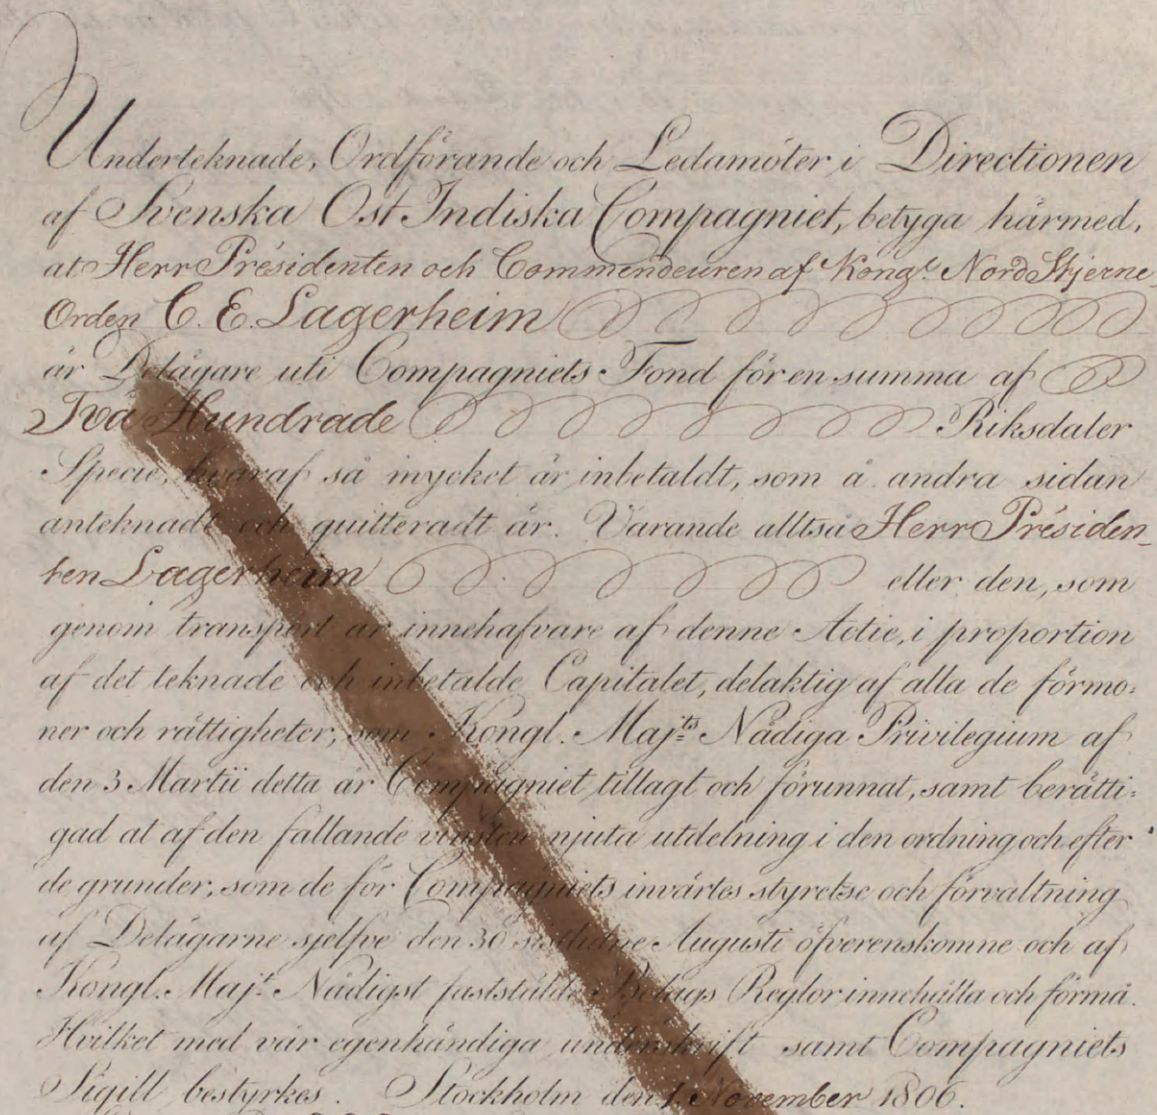 Underteknade, Ordförande och Ledamöter i Directionen
af Svenska Ost Indiska Compagniet, betyga härmed,
at Herr Présidenten och Commendeuren af Kongl. Nord Stjerne
Orden C. E. Lagerheim
är Delägare uti Compagniets Fond för en summa af
Två Hundrade Riksdaler
Specie, hvaraf så mycket är inbetaldt, som å andra sidan
anteknadt och quitteradt är. Varande alltså Herr Présiden-
ten Lagerheim eller den, som
genom transport är innehafvare af denne Actie, i proportion
af det teknade och inbetalde Capitalet, delaktig af alla de förmo:
ner och rättigheter, som Kongl. Maj:ts Nådiga Privilegium af
den 3 Martii detta år Compagniet tillagt och förunnat, samt berätti:
gad at af den fallande vinsten njuta utdelning i den ordning och efter
de grunder, som de för Compagniets invärtes styrelse och förvaltning
af Delägarne sjelfve den 30 sistlidne Augusti öfverenskomne och af
Kongl. Maj:t Nådigst fastställde Bolags Reglor innehålla och förmå.
Hvilket med vår egenhändiga underskrift samt Compagniets
Sigill bestyrkes. Stockholm den 1. November 1806.